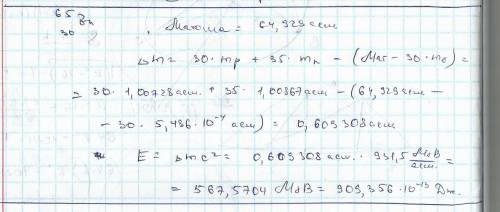 65
30 Zn . Mатома = 64,929 аем
Δm = 30·mp + 35·mn – (Mат – 30·me) =
= 30·1,00728 аем. + 35·1,00867 аем – (64,929 аем –
– 30· 5,486·10⁻⁴ аем) = 0,609308 аем
E = Δmc² = 0,609308 аем. · 931,5 МэВ/аем. =
= 567,5704 МэВ = 909,356·10⁻¹³ Дж.